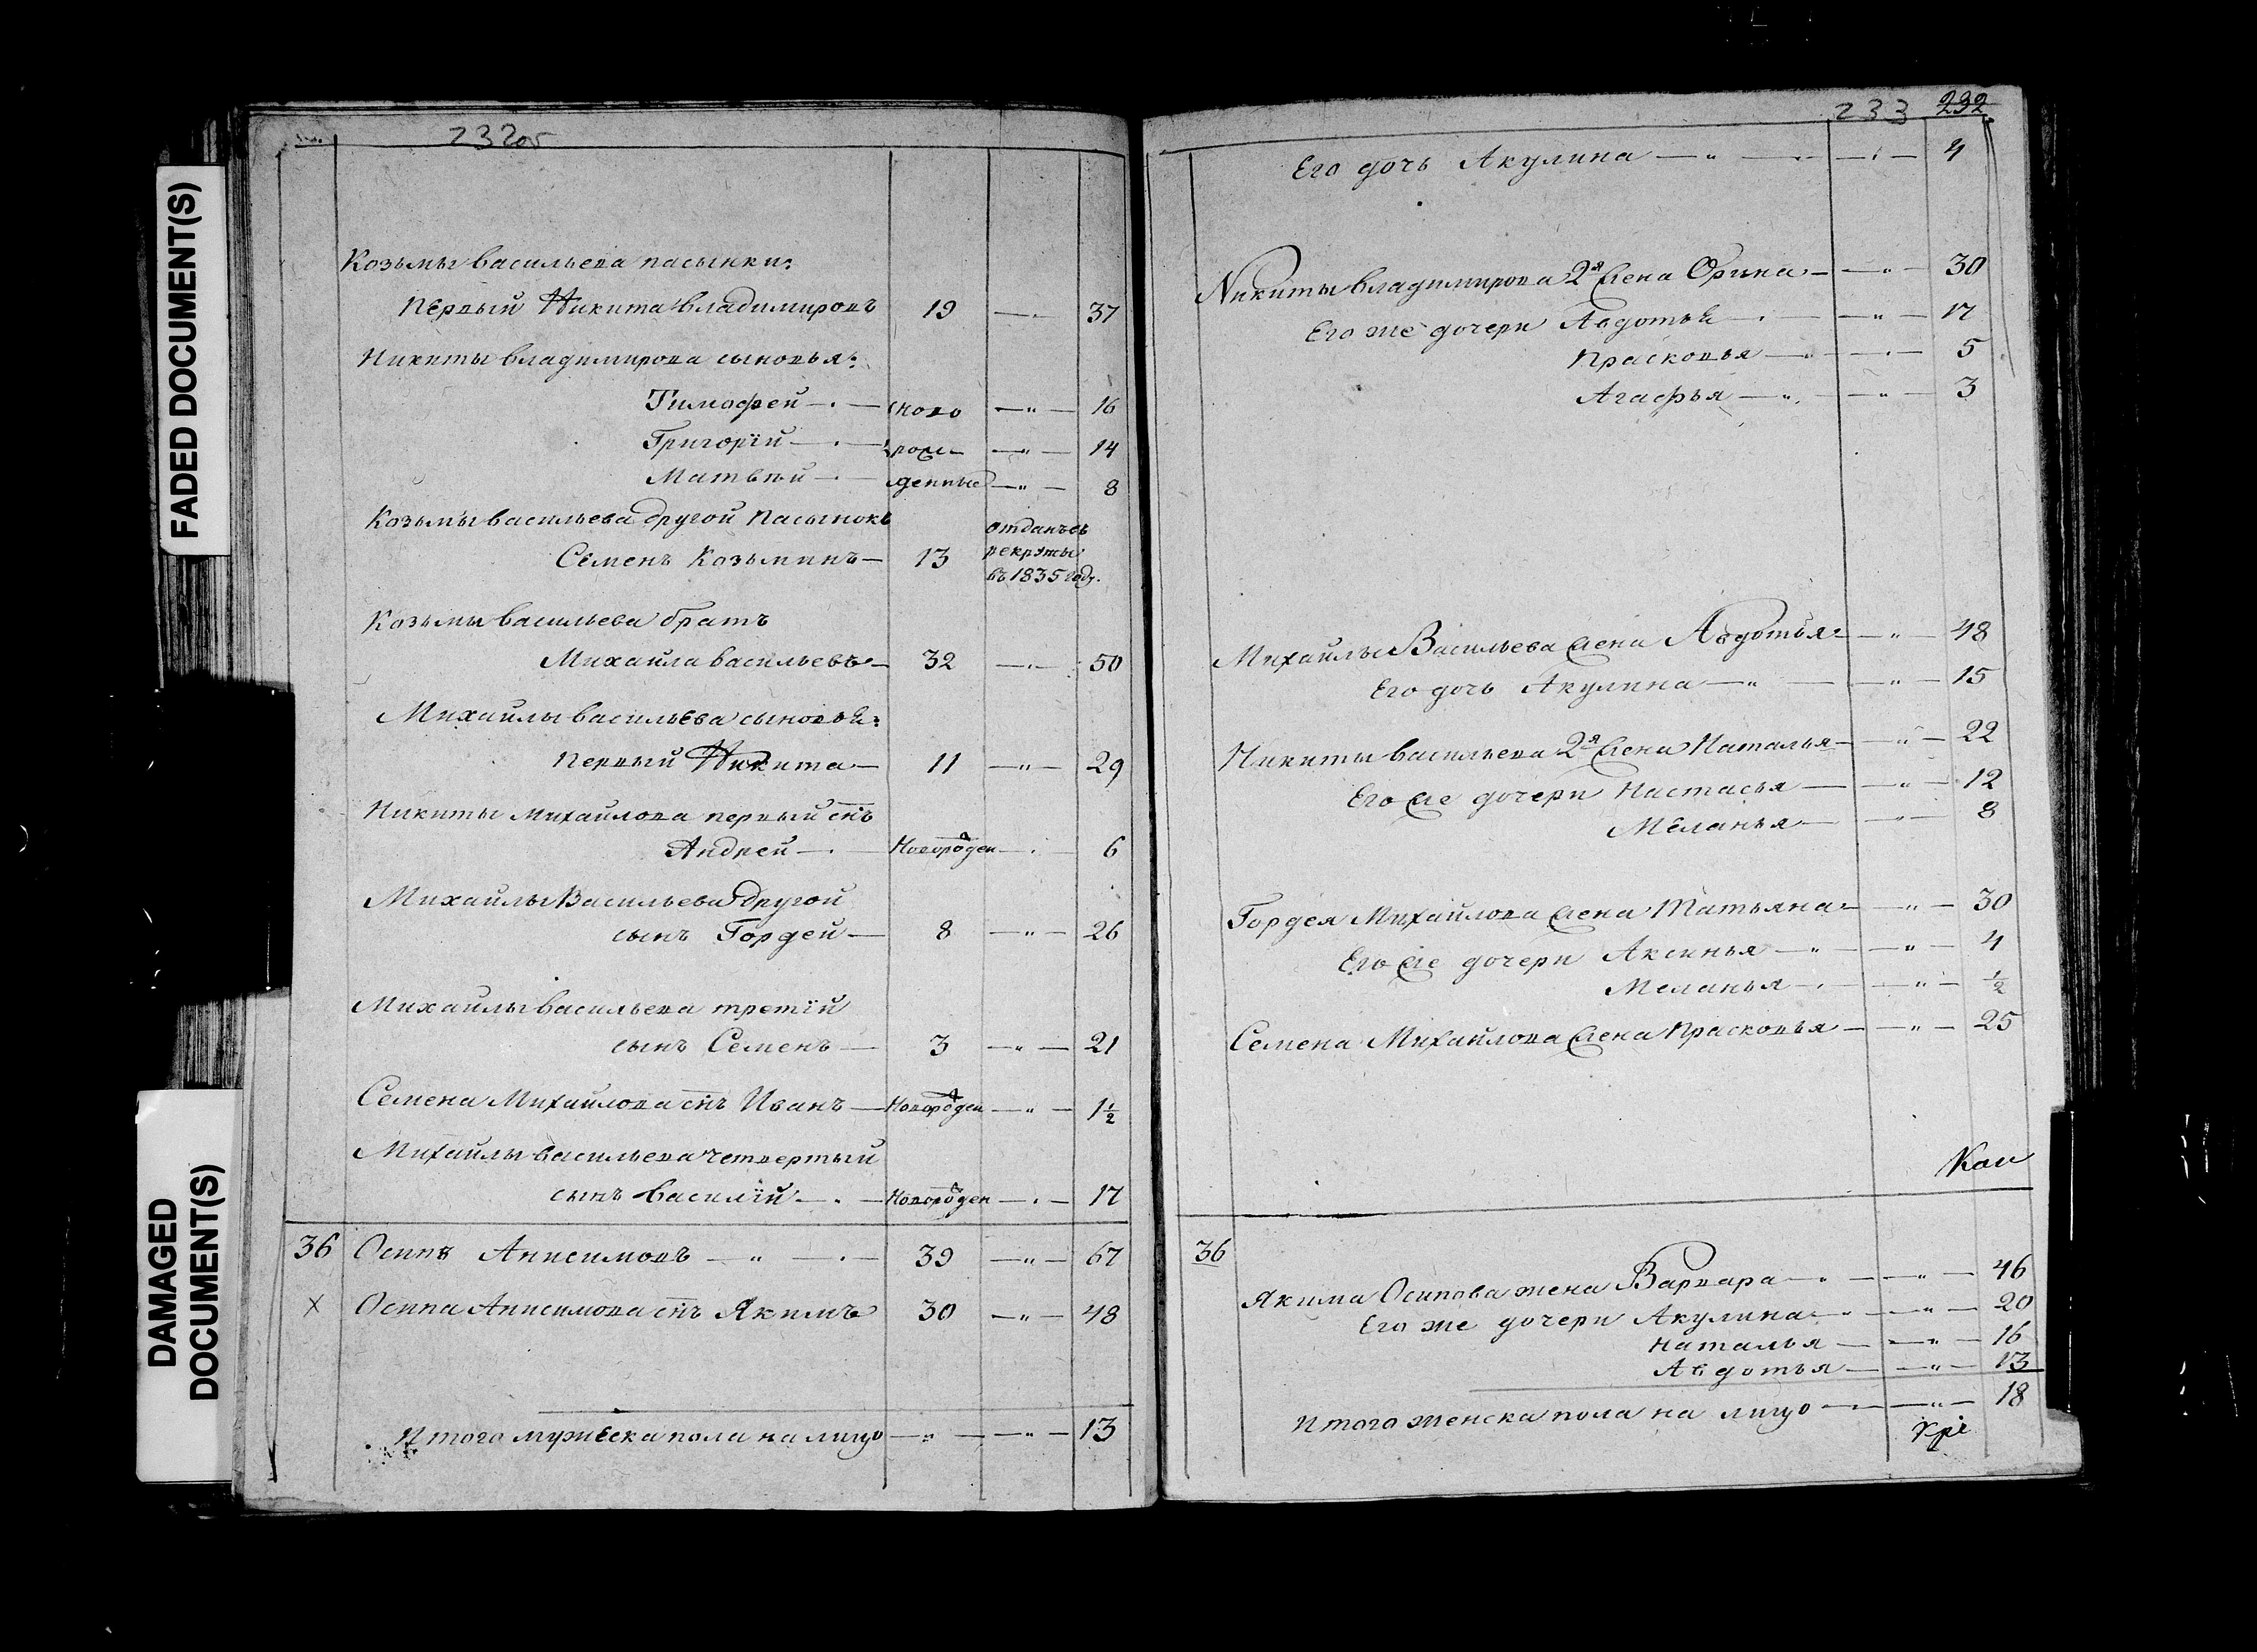 232об
Козьмы Васильева пасынки:
Первый Никита Владимировъ 19 — 37
Никиты Владимирова сыновья:
Тимофей — ново — " — 16
Григорій — рож= — " — 14
Матвей — денные — " — 8
Козьмы Васильева другой пасынокъ
отданъ въ
Семенъ Козьминъ — 13 рекруты
въ 1835 году.
Козьмы Васильева братъ
Михаила Васильевъ — 32 — 50
Михайлы Васильева сыновья:
Первый Никита — 11 — " — 29
Никиты Михайлова первый снъ
Андрей — Новорожден — 6
Михайлы Васильева другой
сынъ Гордей — 8 — " — 26
Михайлы Васильева третій
сынъ Семенъ — 3 — " — 21
Семена Михайлова снъ Иванъ — Новорожден — " — 1½
Михайлы Васильева четвертый
сынъ Василій — Новорожден — 17
36 Осипъ Анисимовъ — " — 39 — " — 67
X Осипа Анисимова снъ Якимъ 30 — " — 48
Итого мужеска пола на лицо — " — " — 13
233 232
Его дочь Акулина — " — 4
Никиты Владимирова 2я жена Орина — " — 30
Его же дочери Авдотья — " — 17
Прасковья — " — 5
Агафья — " — 3
Михайлы Васильева жена Авдотья — " — 48
Его дочь Акулина — " — " — 15
Никиты Васильева 2я жена Наталья — " — 22
Его же дочери Настасья — " — 12
Меланья — " — 8
Гордея Михайлова жена Татьяна — " — 30
Его же дочери Аксинья — " — " — 4
Меланья — " — ½
Семена Михайлова жена Прасковья — " — 25
36
Якима Осипова жена Варвара — " — " — 46
Его же дочери Акулина — " — 20
Наталья — " — 16
Авдотья — " — 13
Итого женска пола на лицо — " — 18
FADED DOCUMENT(S)
DAMAGED
DOCUMENT(S)